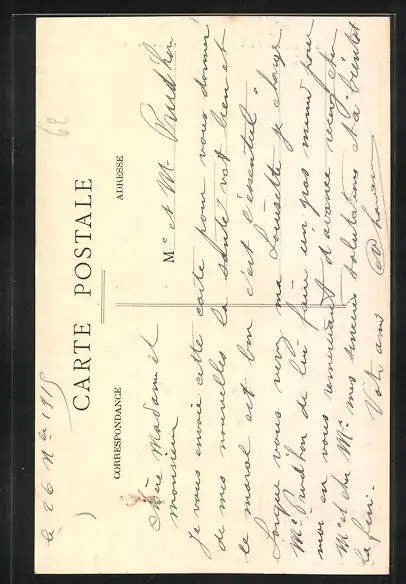 62
le 26 9bre 1915
CARTE POSTALE
CORRESPONDANCE
ADRESSE
Chère Madame et
Monsieur
Mr et Mme
Je vous envoie cette carte pour vous donner
de mes nouvelles la santé vat bien et
le moral est bon c'est l'éssentiel.
Lorque vous verez ma Louisette je charge
Mr de lui faire un gros mimi pour
moi en vous remerciant d'avance recevez cher
Mr et chère Mme mes sincères salutations et a bientot
la fin.
Votre ami